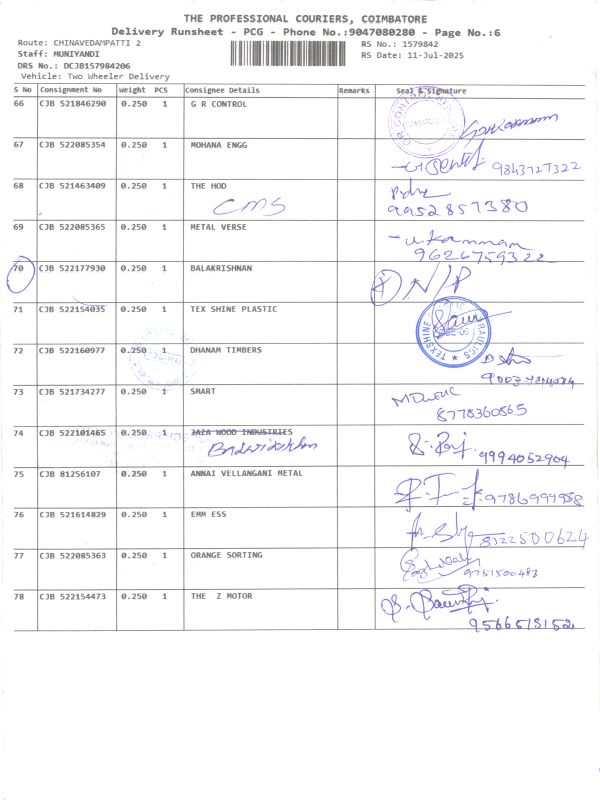 THE PROFESSIONAL COURIERS, COIMBATORE
Delivery Runsheet - PCG - Phone No.:9047080280 - Page No.:6
Route: CHINAVEDAMPATTI 2 RS No.: 1579842
Staff: MUNIYANDI RS Date: 11-Jul-2025
DRS No.: DCJB157984206
Vehicle: Two Wheeler Delivery
S No Consignment No Weight PCS Consignee Details Remarks Seal & Signature
66 CJB 521846290 0.250 1 G R CONTROL
67 CJB 522085354 0.250 1 MOHANA ENGG
9843727322
68 CJB 521463409 0.250 1 THE HOD
CMS 9952857380
69 CJB 522085365 0.250 1 METAL VERSE
u.kannan
9626759322
70 CJB 522177930 0.250 1 BALAKRISHNAN N/P
71 CJB 522154035 0.250 1 TEX SHINE PLASTIC
TEXSHINE
72 CJB 522160977 0.250 1 DHANAM TIMBERS
73 CJB 521734277 0.250 1 SMART
8778360565
74 CJB 522101465 0.250 1 JAZA WOOD INDUSTRIES
9994052904
75 CJB 81256107 0.250 1 ANNAI VELLANGANI METAL
9786994958
76 CJB 521614829 0.250 1 EMM ESS
8122500624
77 CJB 522085363 0.250 1 ORANGE SORTING
9751500483
78 CJB 522154473 0.250 1 THE Z MOTOR
9566513152